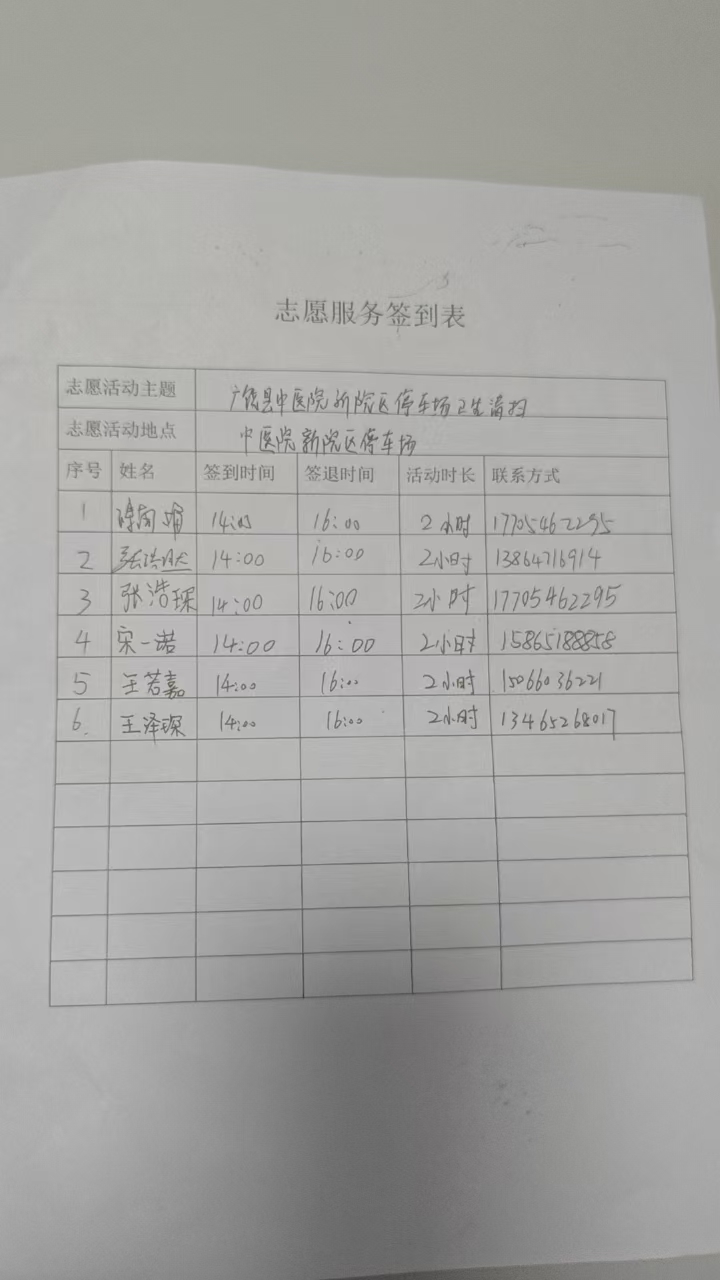 志愿服务签到表
志愿活动主题 广饶县中医院新院区停车场卫生清扫
志愿活动地点 中医院新院区停车场
序号 姓名 签到时间 签退时间 活动时长 联系方式
1 14:00 16:00 2小时 17705462295
2 14:00 16:00 2小时 13864716914
3 张浩琛 14:00 16:00 2小时 17705462295
4 宋一诺 14:00 16:00 2小时 15865188858
5 王若嘉 14:00 16:00 2小时 15066036221
6. 王泽琛 14:00 16:00 2小时 13465268017